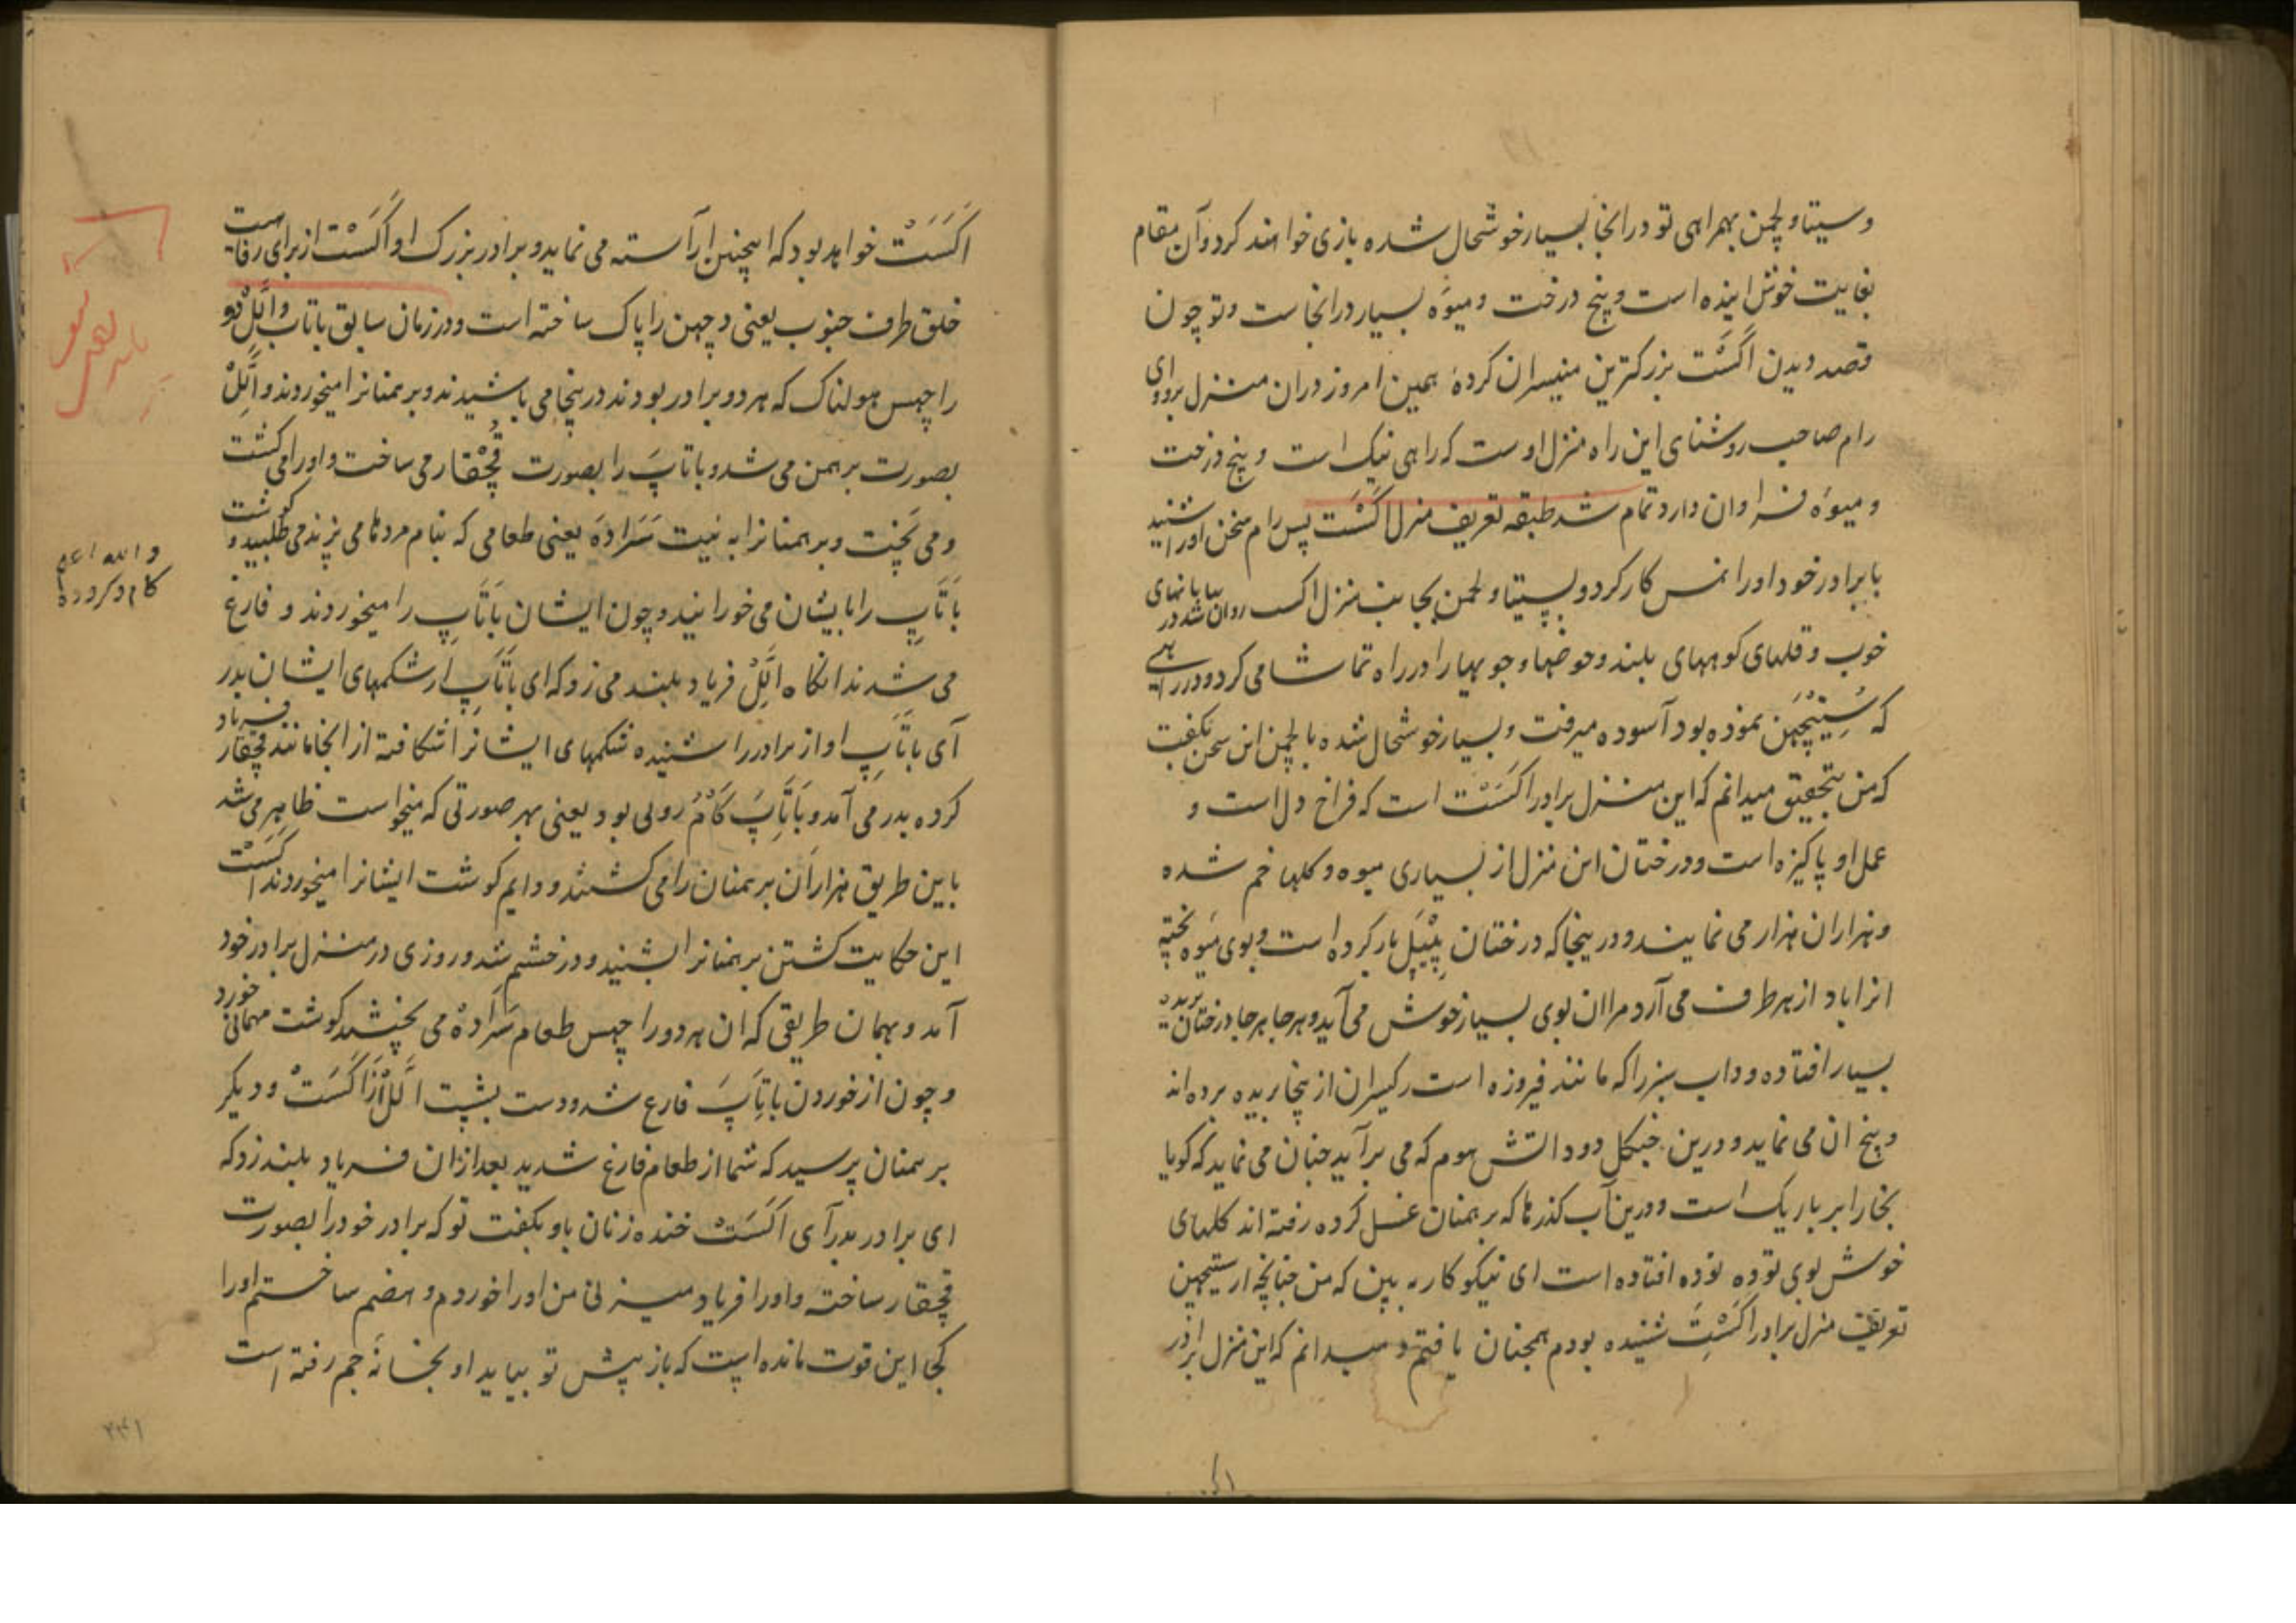 وسیتا و لچمن بهمراهی تو درانجا بسیار خوشحال شده بازی خواهند کرد وآن مقام
بغایت خوش آینده است و پنج درخت و میوه بسیار درانجاست و تو چون
قصد دیدن اگست بزرکترین منیسران کردهٔ همین امروز دران منزل بروی ای
رام صاحب روشنای این راه منزل اوست که راهی نیک است و پنج درخت
و میوه فراوان دارد تمام شد طبقه تعریف منزل اگست پس رام سخن اورا شنید
با برادر خود اورا نمس کار کرد و بسیتا و لچمن بجانب منزل اکست روان شد در بیابانهای
خوب و قلهای کوههای بلند و حوضها و جویهارا در راه تماشا می کرد و در راهی
که ستیچهن نموده بود آسوده میرفت و بسیار خوشحال شده با لچمن این سخن بکفت
که من بتحقیق میدانم که این منزل برادر اکست است که فراخ دل است و
عمل او پاکیزه است و درختان این منزل از بسیاری میوه و کلها خم شده
و هزاران هزار می نمایند و درینجا که درختان پیپل بار کرده است و بوی میوه پخته
انرا باد از هر طرف می آرد مرا ان بوی بسیار خوش می آید و هرجا هرجا درختان بریده
بسیار افتاده و داب سبز را که مانند فیروزه است رکیسران از بیخ بریده برده اند
و بیخ ان می نماید و درین جنکل دود اتش هوم که می برآید چنان می نماید که کویا
بخار ابر باریک است و درین آب کذرها که برهمنان غسل کرده رفته اند کلهای
خوش بوی توده توده افتاده است ای نیکوکار به بین که من چنانچه از ستیچهن
تعریف منزل برادر اکست شنیده بودم همچنان یافتم و میدانم که این منزل برادر
اکست خواهد بود که اینچنین آراسته می نماید و برادر بزرک او اکست از برای رفاهیت
خلق طرف جنوب یعنی دچهن را پاک ساخته است و در زمان سابق باتاب و ایل دو
راچهس هولناک که هر دو برادر بودند درینجا می باشیدند و برهمنانرا میخوردند و ایل
بصورت برهمن می شد و باتاپ را بصورت قچقار می ساخت و اورا می کشت
و می پخت و برهمنانرا به نیت سراده یعنی طعامی که بنام مردها می پزند می طلبید و کوشت
باتاپ را بایشان می خورانید و چون ایشان باتاپ را میخوردند و فارغ
می شدند انکاه ایل فریاد بلند می زد که ای باتاپ از شکمهای ایشان بدر
آی باتاپ اواز برادر را شنیده شکمهای ایشانرا شکافته از انجا مانند قچقار فریاد
کرده بدر می آمد و باتاپ کام روپی بود یعنی بهر صورتی که میخواست ظاهر می شد
باین طریق هزاران برهمنان را می کشتند و دایم کوشت ایشانرا میخوردند اکست
این حکایت کشتن برهمنانرا بشنید و در خشم شد و روزی در منزل برادر خود
آمد و بهمان طریقی که ان هر دو راچهس طعام سراده می پختند کوشت مهمانی خورد
و چون از خوردن باتاپ فارغ شد و دست بشست ایل از اکست و دیکر
برهمنان پرسید که شما از طعام فارغ شدید بعد ازان فریاد بلند زد که
ای برادر بدر آی اکست خنده زنان باو بکفت تو که برادر خود را بصورت
قچقار ساخته و اورا فریاد میزنی من اورا خوردم و هضم ساختم اورا
کجا این قوت مانده است که باز پیش تو بیاید او بخانهٔ جم رفته است
والله اعلم
۲۴۱